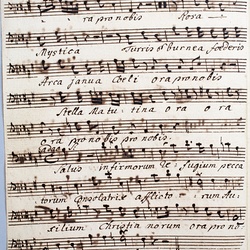 ra pro nobis Rosa
Mystica Turris Eburnea foederis
Arca janua Coeli ora pro nobis
Stella Matu tina ora o ra
o ra pro nobis pro nobis.
Salus infirmorum Re fugium pecca
torum Consolatrix afflicto rum Au
xilium Christia norum ora pro no